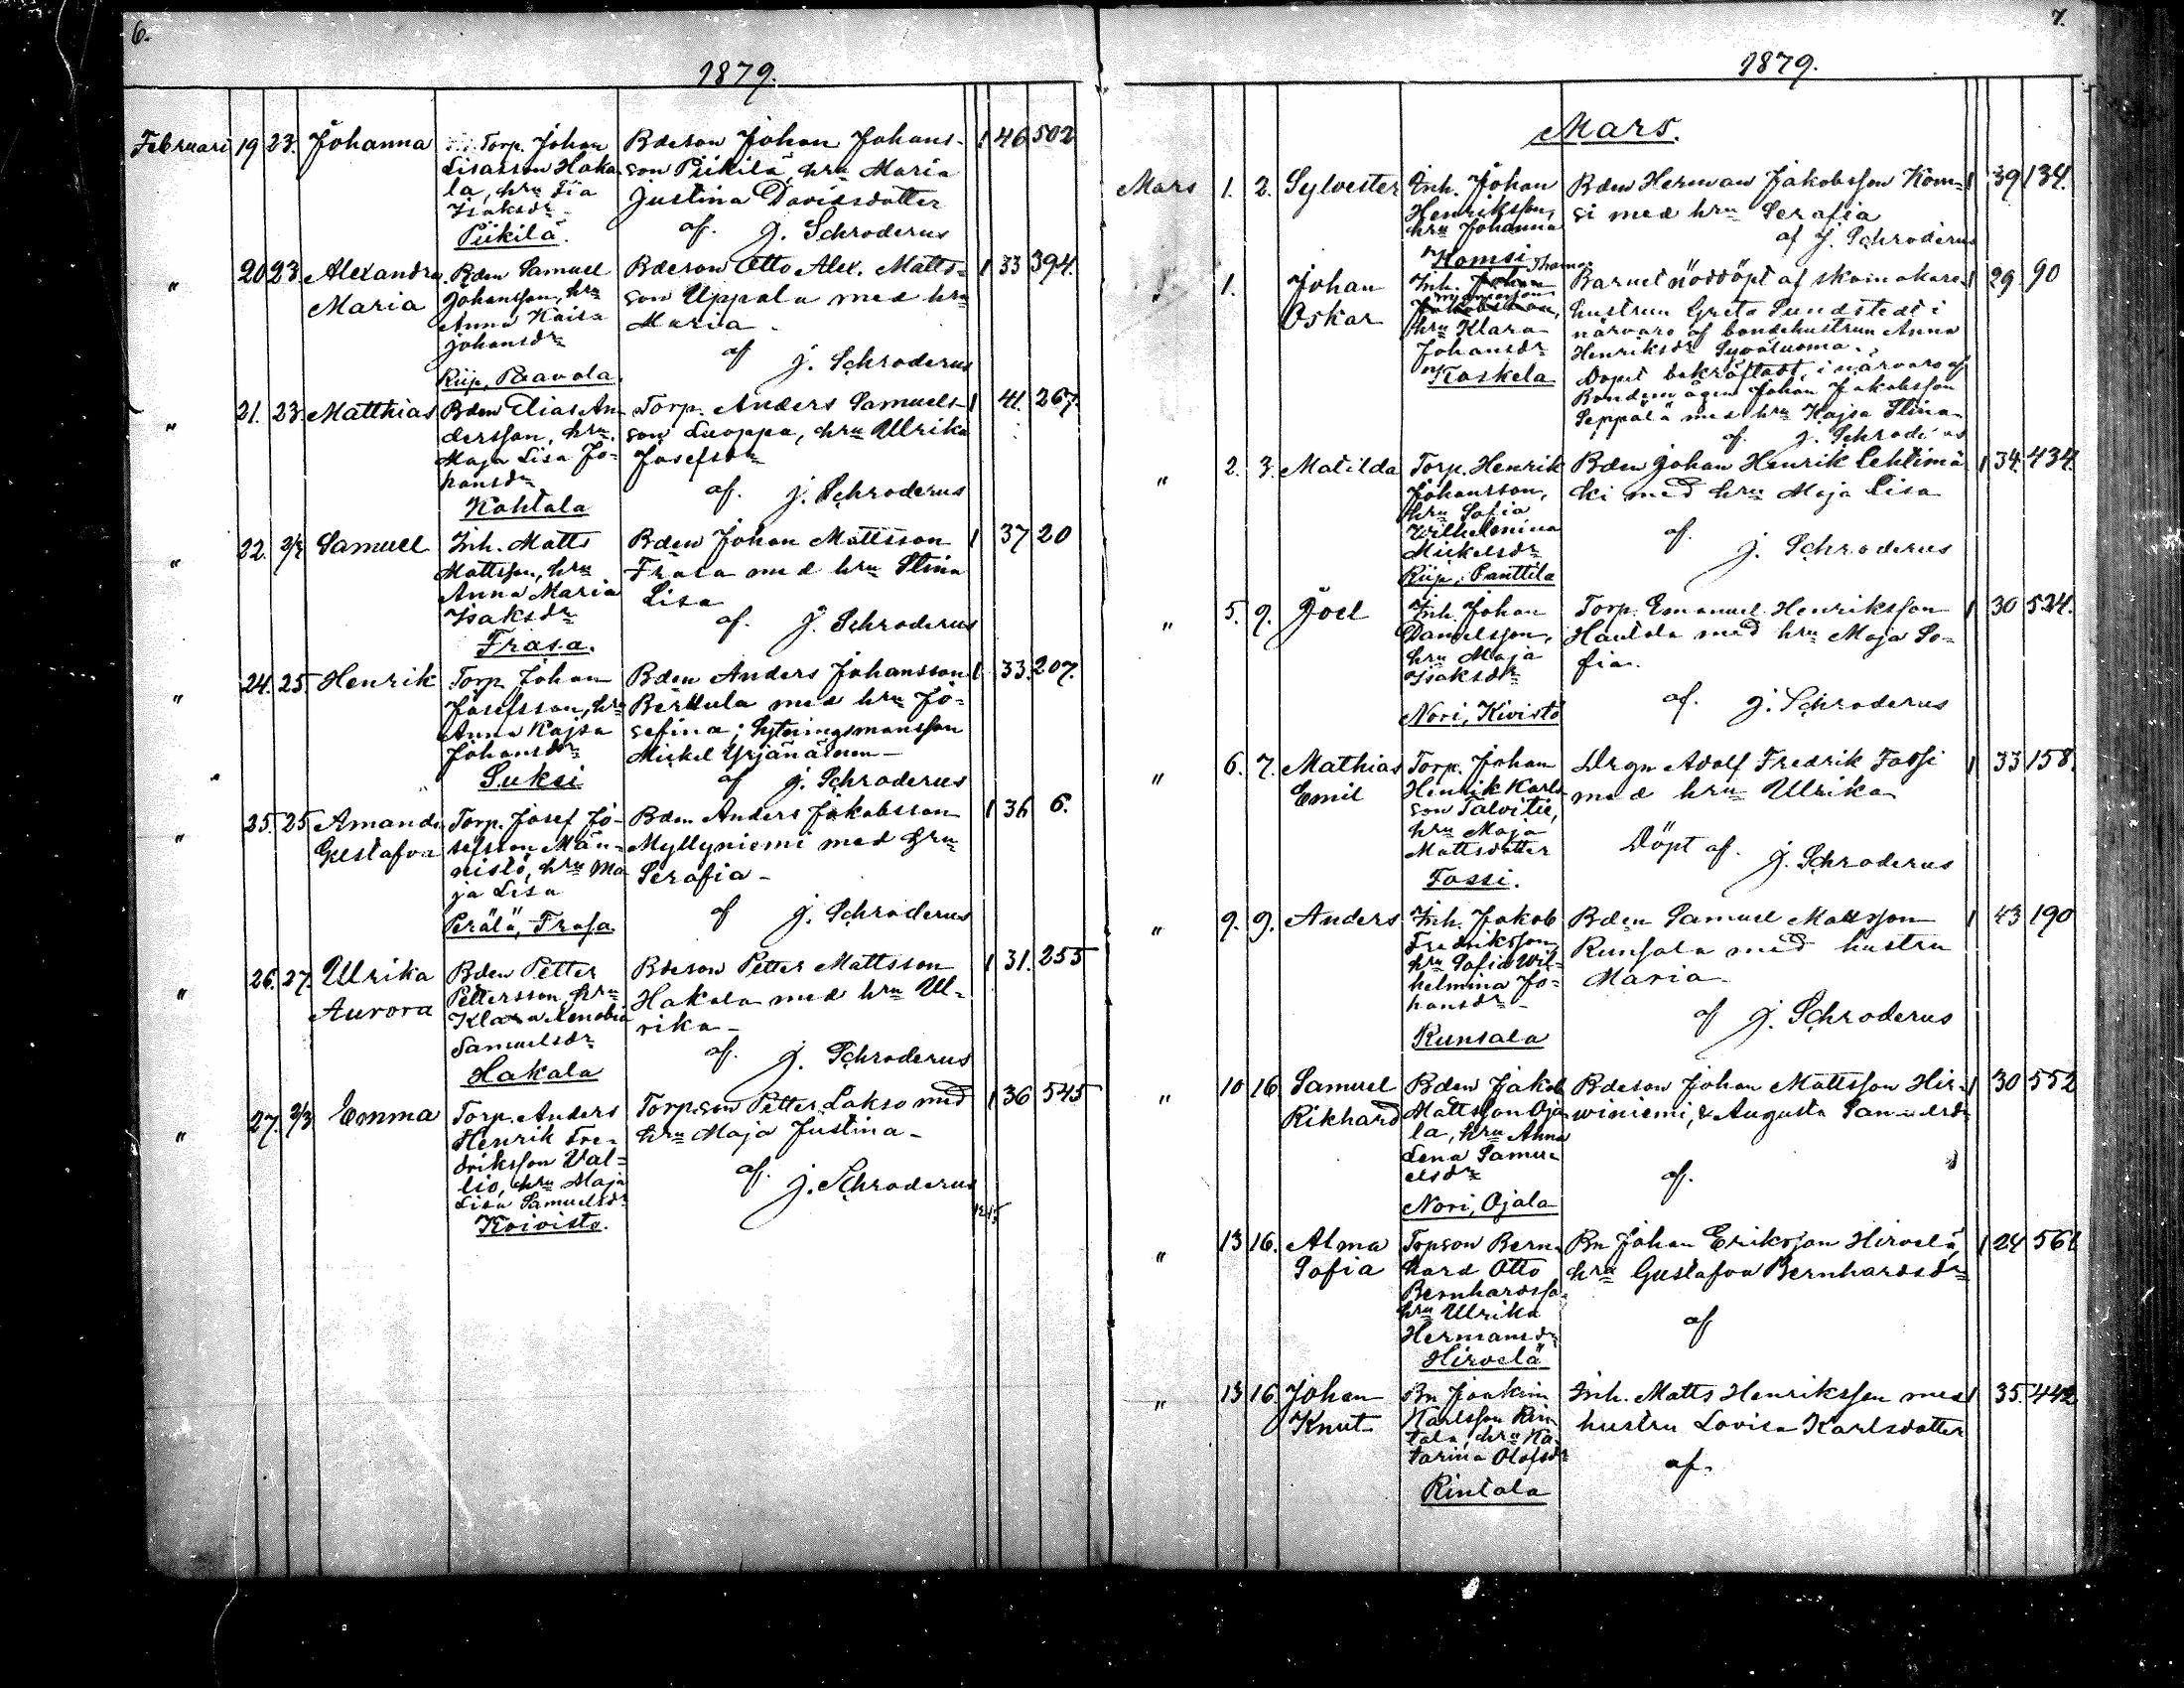 6.
1879.
Februari 19 23. Johanna Torp. Johan Bdeson Johan Johans- 1 46 502
Lisasson Haka son Piikilä, hru Maria
la, hru Fia Justina Davidsdotter
Isaksdr af. J. Schroderus
Piikilä.
" 20 23 Alexandra Bden Samuel Bdeson Otto Alex. Matts- 1 33 394.
Maria Johansson, hru son Uppala med hru
Anna Kaisa Maria
Johansdr af J. Schroderus
Riip, Paavola.
" 21. 23. Matthias Bden Elias An- Torp. Anders Samuels- 1 41. 267.
dersson, hru son Luoppa, hru Ulrika
Maja Lisa Jo- Josefsdr
hansdr af. J. Schroderus
Kohtala
" 22. 2/3 Samuel Inh. Matts Bden Johan Mattsson 1 37 20
Mattsson, hru Frasa med hru Stina
Anna Maria Lisa
Isaksdr af. J. Schroderus
Frasa.
" 24. 25 Henrik Torp Johan Bden Anders Johansson 1 33. 207.
Josefsson, hru Berkula med hru Jo-
Anna Kajsa sefina; Sytningsmansson
Johansdr Mickel Yrjänäinen
Suksi af J. Schroderus
" 25. 25 Amanda Torp. Josef Jo- Bden Anders Jakobsson 1 36 6.
Gustafva sefsson Män- Myllyniemi med hru
nistö, hru Ma Serafia -
ja Lisa
Perälä, Frasa. af J. Schroderus
" 26. 27. Ulrika Bden Petter Bdeson Petter Mattsson 1 31. 255
Aurora Pettersson, hru Hakala med hru Ul-
Klara Xenobia rika -
Samuelsdr af. J. Schroderus
Hakala
" 27. 2/3 Emma Torp. Anders Torp.son Petter Lakso med 1 36 545
Henrik Fre- hru Maja Justina -
driksson Val-
lio, hru Maja af. J. Schroderus
Lisa Samuelsdr
Koivisto.
7.
1879.
Mars.
Mars 1. 2. Sylvester Inh. Johan Bden Herman Jakobsson Kom- 1 39 134.
Henriksson, si med hru Serafia
hru Johanna af J. Schroderus
Komsi
1. Johan Inh. Johan Thomas Barnet nöddöpt af skomakare- 1 29. 90
Oskar Jakobsson, hustrun Greta Sundstedt i
hru Klara närvaro af bondehustrun Anna
Johansdr Henriksdr Syväluoma.
Koskela Dopet bekräftadt i närvaro af
Bondemågen Johan Jakobsson
Seppälä med hru Kajsa Stina
af. J. Schroderus
" 2. 3. Matilda Torp. Henrik Bden Johan Henrik Lehtimä 1 34. 434.
Johansson, ki med hru Maja Lisa
hru Sofia
Wilhelmina af.
Mickelsdr J. Schroderus
Riip, Panttila
" 5. 9. Joel Inh. Johan Torp. Emanuel Henriksson 1 30 524.
Danielsson, Hautala med hru Maja So-
hru Maja fia.
Isaksdr af. J. Schroderus
Nori, Kivistö
" 6. 7. Mathias Torp. Johan Drgn Adolf Fredrik Fossi 1 33 158.
Emil Henrik Karls- med hru Ulrika
son Talvitie,
hru Maja
Mattsdotter Döpt af. J. Schroderus
Fossi.
" 9. 9. Anders Inh. Jakob Bden Samuel Mattsson 1 43 190
Fredriksson, Runsala med hustru
hru Sofia Wil- Maria
helmina Jo-
hansdr - af J. Schroderus
Runsala
" 10 16 Samuel Bden Jakob Bdeson Johan Mattsson Hir- 1 30 552
Rikhard Mattsson Oja- winiemi, & Augusta Samuelsdr
la, hru Anna
Lena Samu-
elsdr af.
Nori, Ojala
" 13 16. Alma Topson Bern- Bn Johan Eriksson Hirvelä, 1 24 561
Sofia hard Otto hru Gustafva Bernhardsdr
Bernhardsso
hru Ulrika
Hermansdr af
Hirvelä
" 13 16 Johan Bn Joakim Inh. Matts Henriksson med 1 35. 442
Knut Karlsson Rin hustru Lovisa Karlsdotter
tala, hru Ka-
tarina Olofsdr af.
Rintala